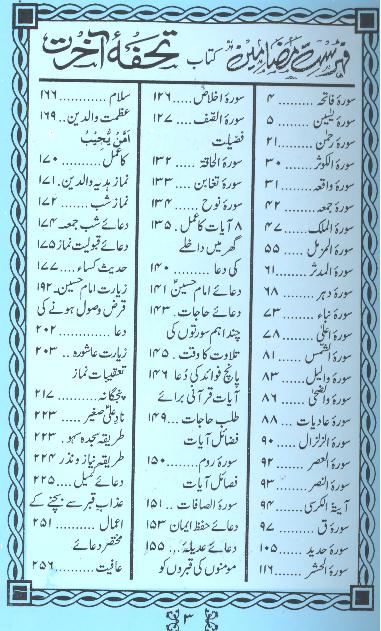 فہرست مضامین کتاب تحفۂ آخرت
سورۂ فاتحہ ........ ۴
سورۂ یٰسین ........ ۵
سورۂ رحمٰن ........ ۲۱
سورۂ الکوثر ........ ۳۰
سورۂ واقعہ ........ ۳۱
سورۂ جمعہ ........ ۴۲
سورۂ الملک ........ ۴۷
سورۂ المزمل ........ ۵۵
سورۂ المدثر ........ ۶۱
سورۂ دہر ........ ۶۸
سورۂ نباء ........ ۷۳
سورۂ اعلیٰ ........ ۷۸
سورۂ الشمس ........ ۸۱
سورۂ والیل ........ ۸۳
سورۂ والضحیٰ ........ ۸۶
سورۂ عادیات ........ ۸۸
سورۂ الزلزال ........ ۹۰
سورۂ العصر ........ ۹۲
سورۂ النصر ........ ۹۳
آیۃ الکرسی ........ ۹۴
سورۂ ق ........ ۹۷
سورۂ حدید ........ ۱۰۵
سورۂ الحشر ........ ۱۱۶
سورۂ اخلاص ..... ۱۲۶
سورۂ الصف ..... ۱۲۷
فضیلت
سورۂ الحاقۃ ..... ۱۳۲
سورۂ تغابن ..... ۱۳۳
سورۂ نوح ..... ۱۳۴
۸ آیات کا عمل . ۱۳۵
گھر میں داخلے
کی دعا ........ ۱۴۰
دعائے امام حسینؑ ۱۴۱
دعائے حاجات . ۱۴۳
چند اہم سورتوں کی
تلاوت کا وقت . ۱۴۵
پانچ فوائد کی دُعا ۱۴۶
آیات قرآنی برائے
طلب حاجات ... ۱۴۹
فضائل آیات
سورۂ روم ..... ۱۵۰
فضائل آیات
سورۂ الصافات .. ۱۵۱
دعائے حفظ ایمان ۱۵۳
دعائے عدیلہ ... ۱۵۵
مومنوں کی قبروں کو
سلام ........ ۱۶۶
عظمت والدین .. ۱۶۹
اَمَّنْ یُّجِیْبُ
کا عمل ........ ۱۷۰
نماز ہدیہ والدین . ۱۷۱
نماز شب ..... ۱۷۲
دعائے شب جمعہ ۱۷۴
دعائے قبولیت نماز ۱۷۵
حدیث کساء .... ۱۷۷
زیارت امام حسینؑ . ۱۹۲
قرض وصول ہونے کی
دعا ........ ۲۰۲
زیارت عاشورہ .. ۲۰۳
تعقیبات نماز
پنجگانہ ........ ۲۱۷
ناد علیؑ صغیر .... ۲۲۳
طریقہ سجدہ سہو .. ۲۲۳
طریقہ نیاز و نذر ۲۲۴
دعائے کمیل .... ۲۲۵
عذاب قبر سے بچنے کے
اعمال ........ ۲۵۱
مختصر دعائے
عافیت ........ ۲۵۶
۳